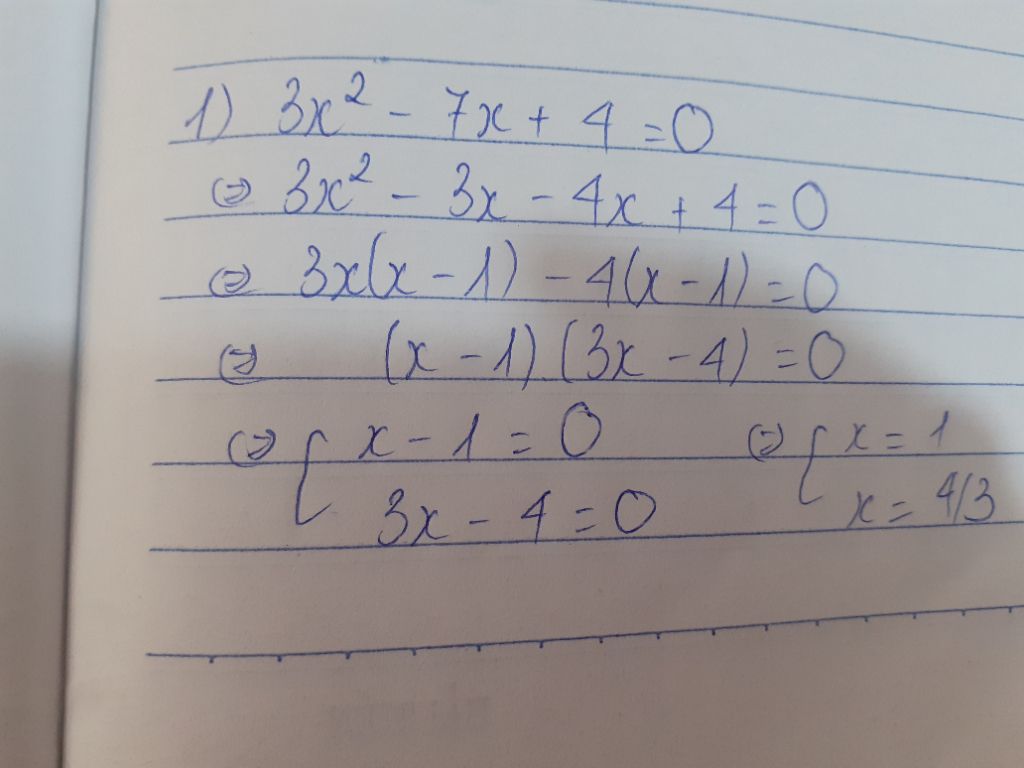 1) 3x² - 7x + 4 = 0
⇔ 3x² - 3x - 4x + 4 = 0
⇔ 3x(x - 1) - 4(x - 1) = 0
⇔ (x - 1) (3x - 4) = 0
⇔ [ x - 1 = 0 ⇔ [ x = 1
3x - 4 = 0 x = 4/3